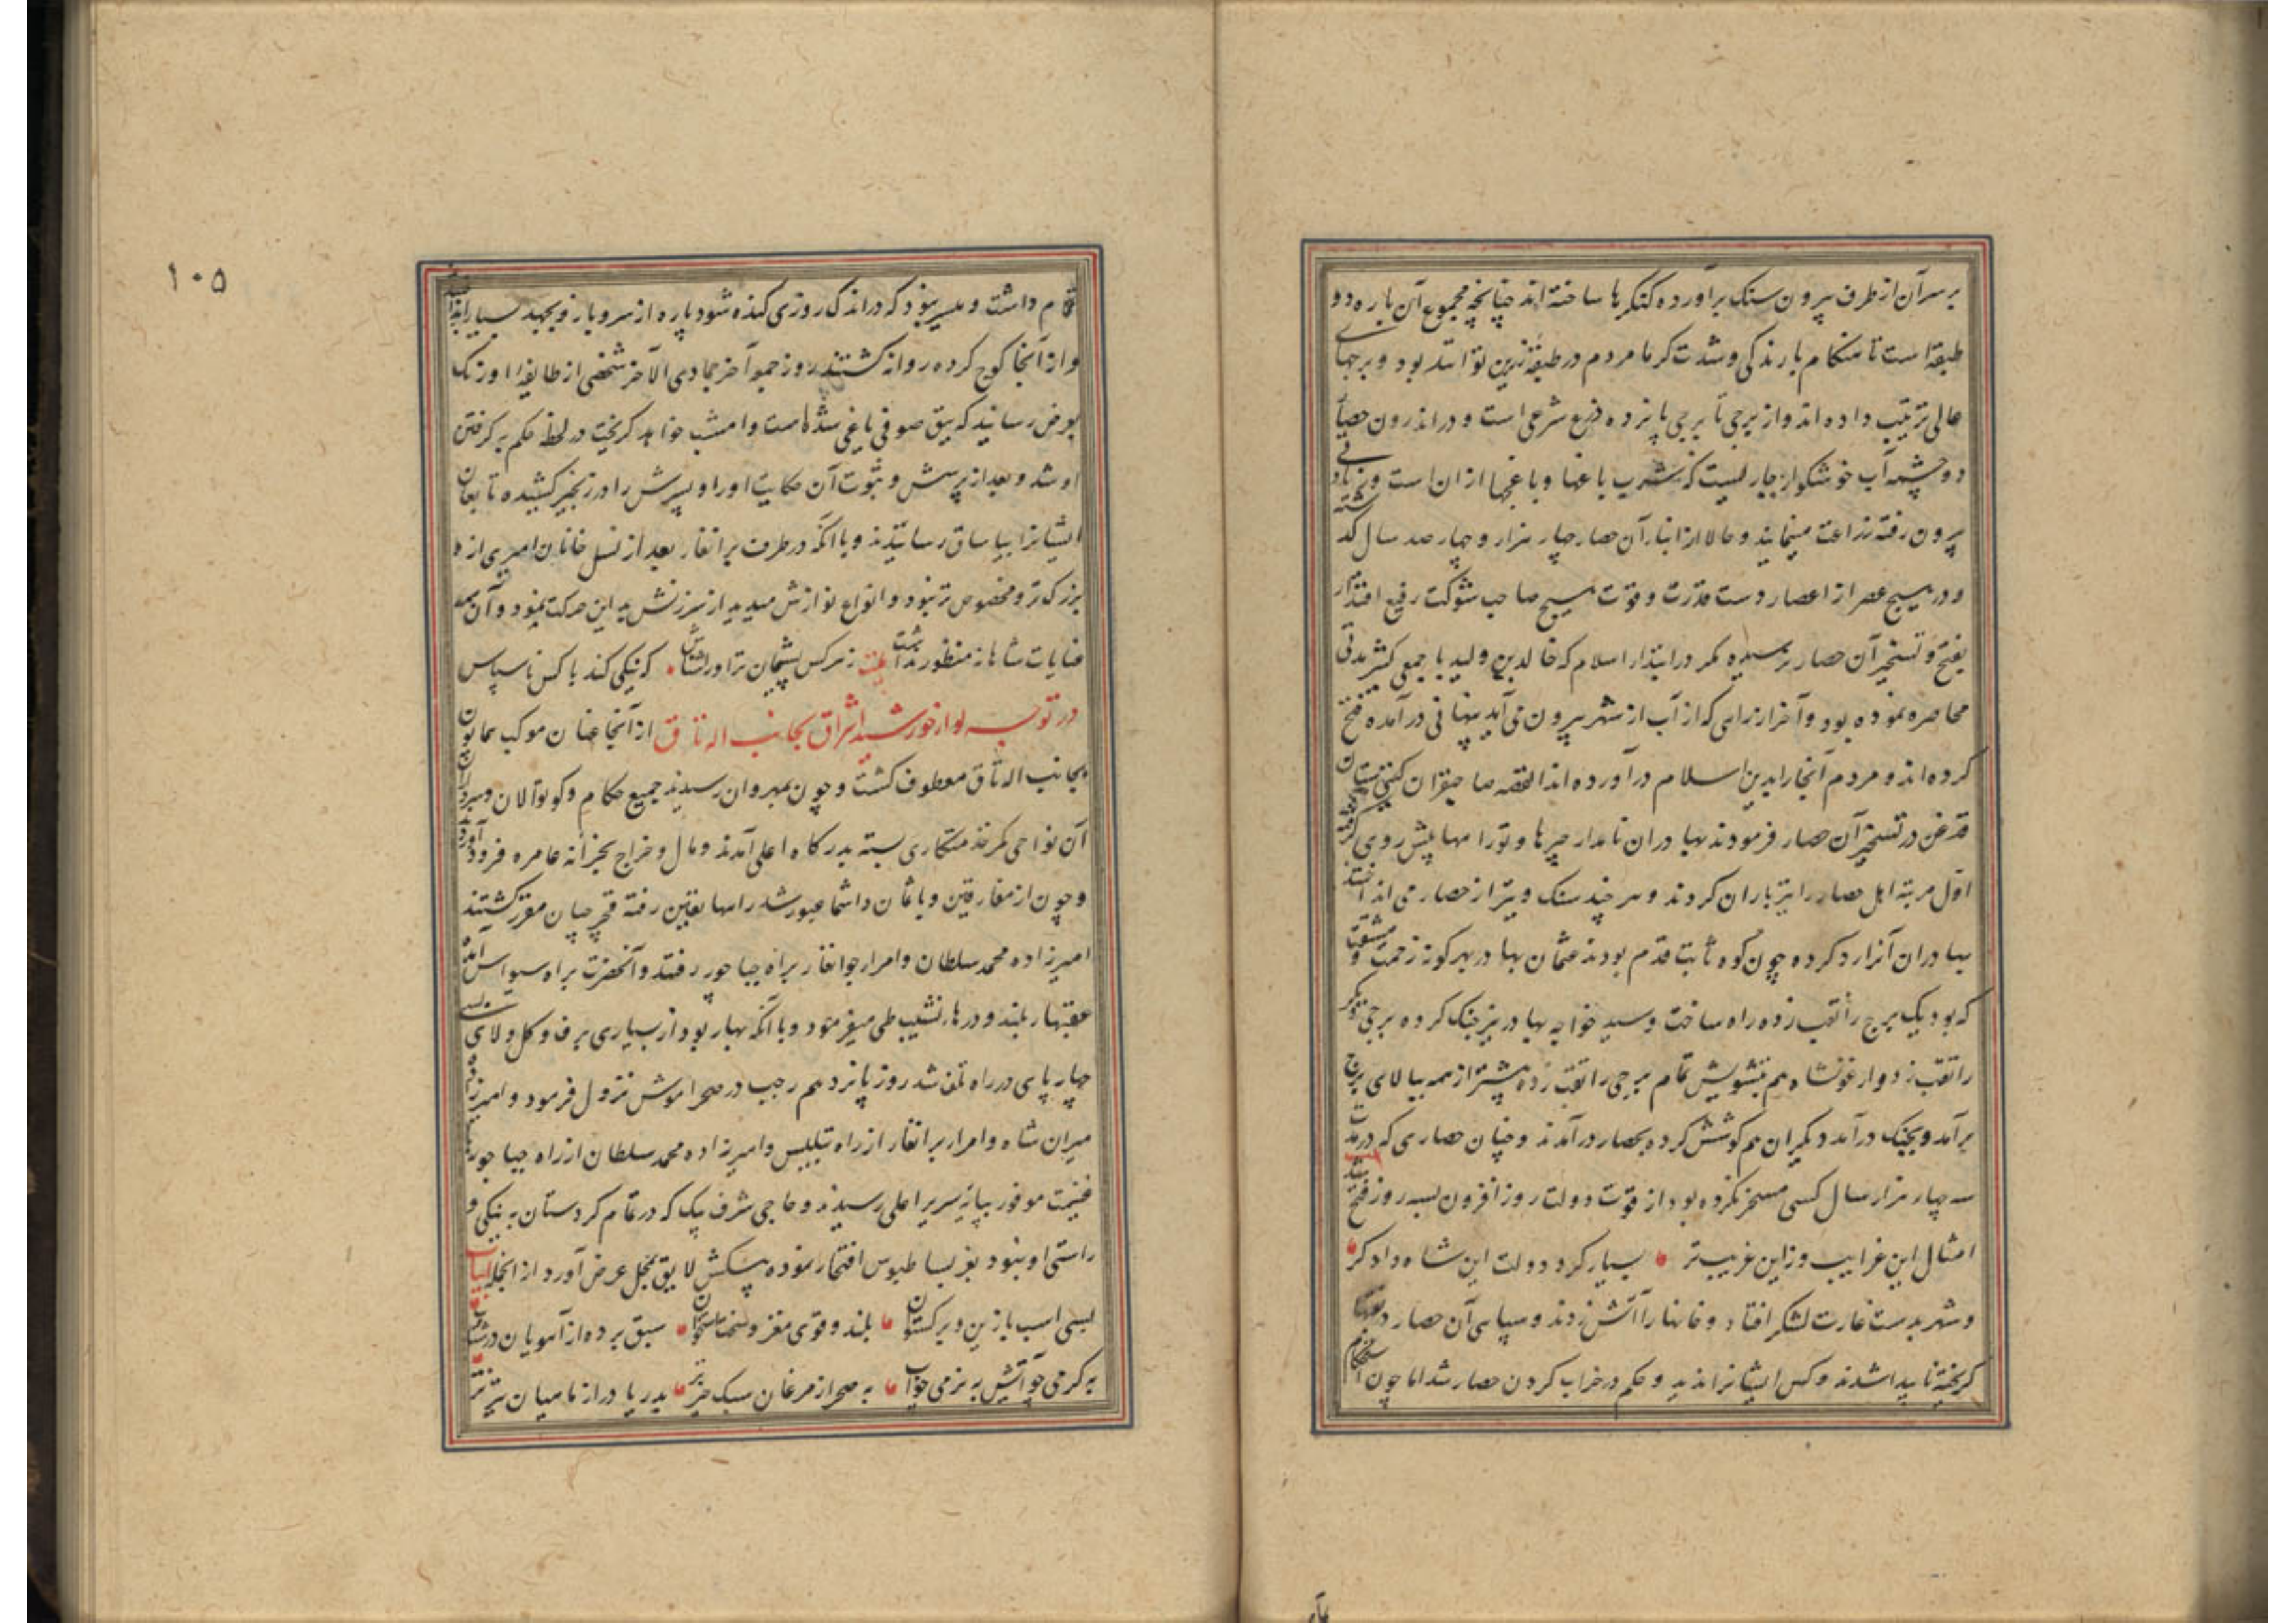 بر سر آن از طرف بیرون سنک برآورده کنکرها ساخته اند چنانچه مجموع آن باره دو
طبقه است تا هنکام بارندکی و شدت کرما مردم در طبقه زیرین توانند بود و برجهای
عالی ترتیب داده اند و از برجی تا برجی پانزده ذرع شرعی است و در اندرون حصار
دو چشمه آب خوشکوار جاریست که شرب باغها و باغچها از ان است و
بیرون رفته زراعت مینمایند و حالا از ابنار آن حصار چهار هزار و چهار صد سال کذشته
و در هیچ عصر از اعصار دست قدرت و قوت هیچ صاحب شوکت رفیع اقتدار
بفتح و تسخیر آن حصار نرسیده مکر در ابتدار اسلام که خالد بن ولید با جمعی کثیر مدتی
محاصره نموده بود و آخر از راهی که از آب از شهر بیرون می آید پنهانی در آمده فتح
کرده اند و مردم آنجا را بدین اسلام در آورده اند القصه صاحبقران کیتی ستان
قدغن در تسخیر آن حصار فرمودند بهادران نامدار چپرها و تورا مها پیش روی کرفته
اول مرتبه اهل حصار را تیرباران کردند و هر چند سنک و تیر از حصار می انداختند
بهادران آنرا رد کرده چون کوه ثابت قدم بودند عثمان بهادر بهر کونه زحمت و مشقت
که بود یک برج را نقب زده راه ساخت و سید خواجه بهادر نیز جنک کرده برجی دیکر
را نقب زد و ارغونشاه هم بتشویش تمام برجی را نقب زده پیشتر از همه ببالای برج
برآمد و بجنک درآمد و دیکران هم کوشش کرده بحصار درآمدند و چنان حصاری که در مدت
چهار هزار سال کسی مسخر نکرده بود از قوت دولت روز افزون بسه روز فتح شد بیت
امثال این غرایب وزاین غریب تر بسیار کرد دولت این شاه دادکر
و شهر بدست غارت لشکر افتاد و خانها را آتش زدند و سپاهی آن حصار
کریخته ناپیدا شدند و کس ایشانرا ندید و حکم در خراب کردن حصار شد اما چون استحکام
۱۰۵
تمام داشت و میسر نبود که در اندک روزی کنده شود پاره از سر و بارو بجهد بسیار
و از آنجا کوچ کرده روانه کشتند روز جمعه آخر جمادی الآخر شخصی از طایفه اوزبک
بعرض رسانید که یبق صوفی یاغی شده است و امشب خواهد کریخت در لحظه حکم به کرفتن
او شد و بعد از پرسش و ثبوت آن حکایت او را و پسرش را در زنجیر کشیده تابعان
ایشانرا بیاساق رسانیدند و با آنکه در طرف برانغار بعد از نسل خانان امیری از و
بزرک تر و مخصوص تر نبود و انواع نوازش میدید از سرزنش به این حرکت نمود و آن همه
عنایات شاهانه منظور نداشت بیت ز نرکس پشیمان تر او را شناس که نیکی کند با کس ناسپاس
در توجه لوار خورشید اشراق بجانب اله تاق از آنجا عنان موکب همایون
بجانب اله تاق معطوف کشت و چون بمهروان رسیدند جمیع حکام و کوتوالان
آن نواحی کمر خدمتکاری بسته بدرکاه اعلی آمدند و مال و خراج بخزانه عامره فرود آورده
و چون از مفارقین و باعان و اشما عبور شد راهها بعین رفته قجرچیان مقرر کشتند
امیرزاده محمد سلطان و امرار جوانغار براه جباجور رفتند و آنحضرت براه سیواس آمد
عقبهار بلند و درهار نشیب طی میفرمود و با آنکه بهار بود از بسیاری برف و کل و لای بسی
چهار پای در راه تلف شد روز پانزدهم رجب در صحرا موش نزول فرمود و امیرزاده
میران شاه و امرار برانغار از راه تبلیس و امیرزاده محمد سلطان از راه جباجور با
غنیمت موفور بپایه سریر اعلی رسیدند و حاجی شرف بیک که در تمام کردستان به نیکی و
راستی او نبود بعز بساطبوس افتخار نموده پیشکش لایق بمحل عرض آورد از انجمله ابیات
بسی اسب با زین و برکستوان بلند و قوی مغز و سخت استخوان سبق برده از آهوان در شتاب
به کرمی چو آتش به نرمی چو آب به صحرا از مرغان سبک خیز تر بدریا در از ماهیان تیز تر